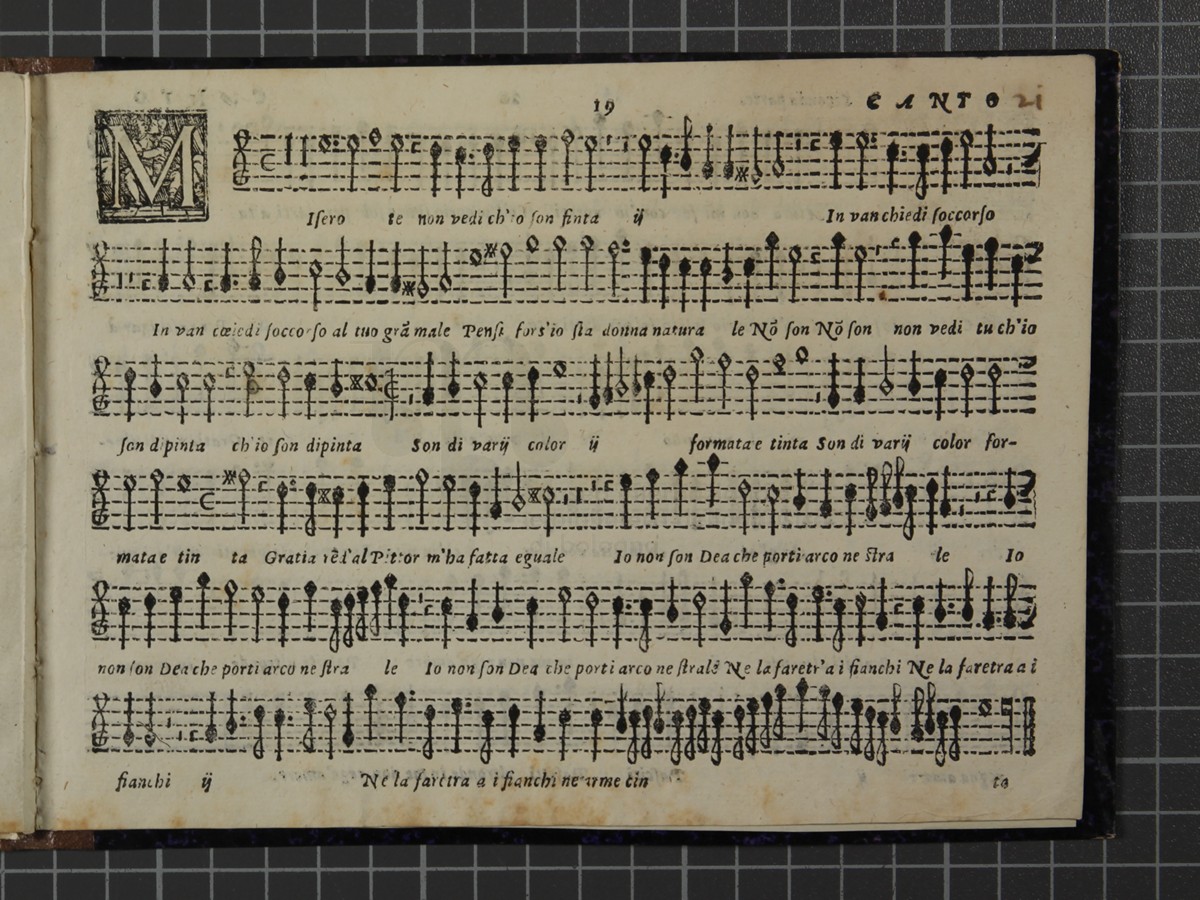 19 CANTO 21
M
Isero te non vedi ch'io son finta ij In van chiedi soccorso
In van chiedi soccorso al tuo grã male Pensi fors'io sia donna natura le Nõ son Nõ son non vedi tu ch'io
son dipinta ch'io son dipinta Son di varij color ij formata e tinta Son di varij color for-
mata e tin ta Gratia al Pittor m'ha fatta eguale Io non son Dea che porti arco ne stra le Io
non son Dea che porti arco ne stra le Io non son Dea che porti arco ne strale Ne la faretr'a i fianchi Ne la faretra a i
fianchi ij Ne la faretra a i fianchi ne arme cin ta